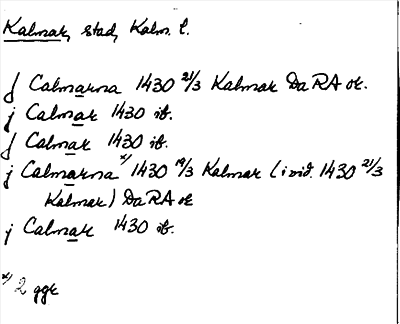 Kalmar, stad, Kalm. l.
j Calmarna 1430 21/3 Kalmar DaRA or.
j Calmar 1430 ib.
j Calmar 1430 ib.
j Calmarna x) 1430 19/3 Kalmar (i vid. 1430 21/3
Kalmar) DaRA or
j Calmar 1430 ib.
x) 2 ggr